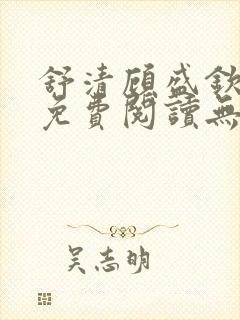 舒清顾盛欽
免費閱讀無
吴志明